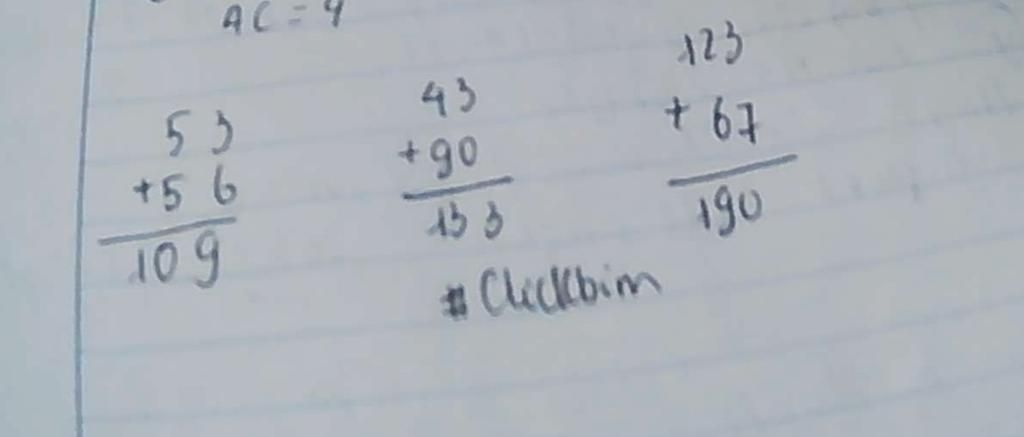 AC = 4
53
+56
109
43
+90
133
123
+ 67
190
#Clickbim